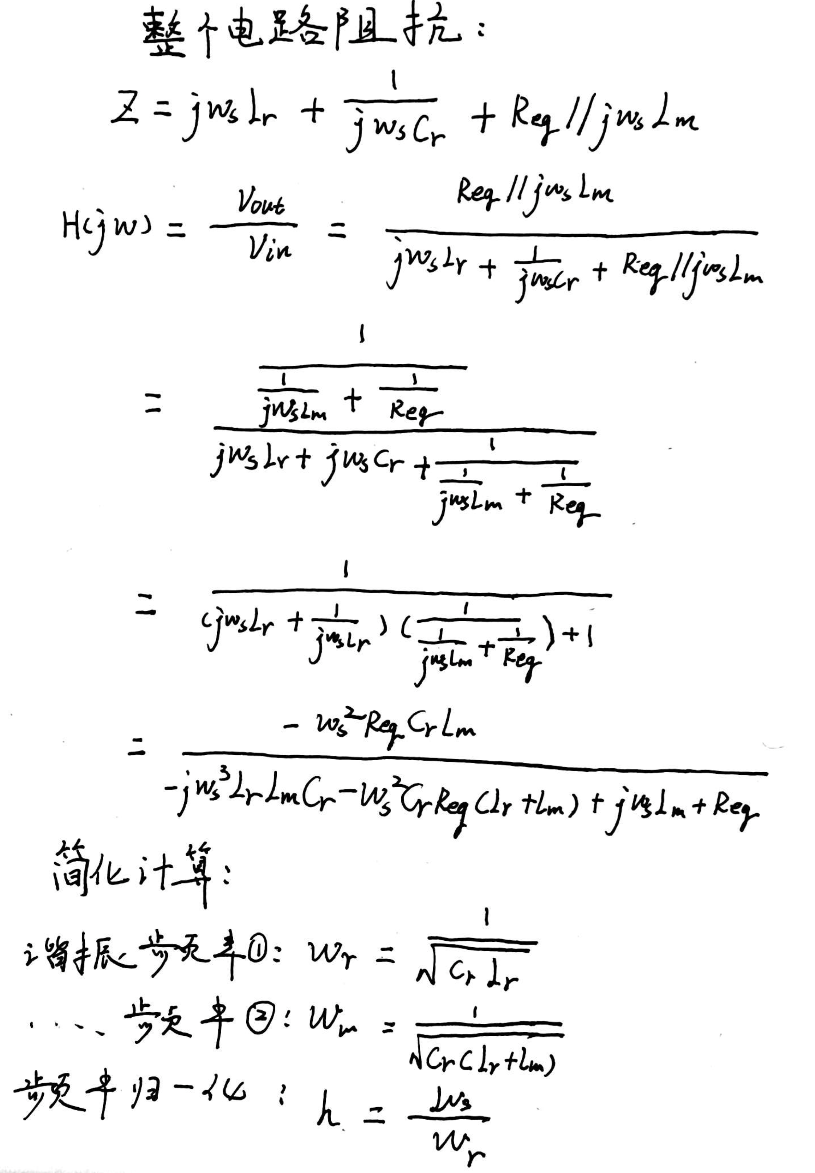 整个电路阻抗：
Z = jω_s L_r + \frac{1}{jω_s C_r} + Req // jω_s L_m
H(jω) = \frac{V_{out}}{V_{in}} = \frac{Req // jω_s L_m}{jω_s L_r + \frac{1}{jω_s C_r} + Req // jω_s L_m}
= \frac{\frac{1}{\frac{1}{jω_s L_m} + \frac{1}{Req}}}{jω_s L_r + jω_s C_r + \frac{1}{\frac{1}{jω_s L_m} + \frac{1}{Req}}}
= \frac{1}{(jω_s L_r + \frac{1}{jω_s L_r})(\frac{1}{\frac{1}{jω_s L_m} + \frac{1}{Req}}) + 1}
= \frac{-ω_s^2 Req C_r L_m}{-jω_s^3 L_r L_m C_r - ω_s^2 C_r Req (L_r + L_m) + jω_s L_m + Req}
简化计算：
谐振频率①：ω_r = \frac{1}{\sqrt{C_r L_r}}
..... 频率②：ω_m = \frac{1}{\sqrt{C_r (L_r + L_m)}}
频率归一化：h = \frac{ω_s}{ω_r}